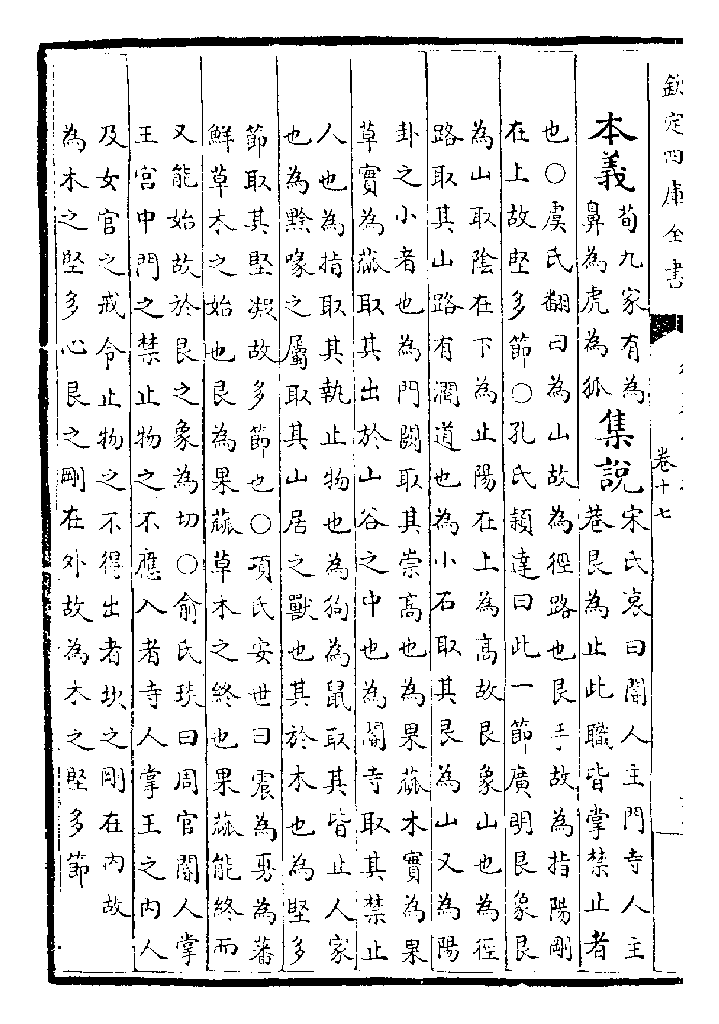 欽定四庫全書
卷十七
本義 荀九家有為
鼻為虎為狐
集說 宋氏衷曰閽人主門寺人主
巷艮為止此職皆掌禁止者
也○虞氏翻曰為山故為徑路也艮手故為指陽剛
在上故堅多節○孔氏穎達曰此一節廣明艮象艮
為山取陰在下為止陽在上為高故艮象山也為徑
路取其山路有澗道也為小石取其艮為山又為陽
卦之小者也為門闕取其崇高也為果蓏木實為果
草實為蓏取其出於山谷之中也為閽寺取其禁止
人也為指取其執止物也為狗為鼠取其皆止人家
也為黔喙之屬取其山居之獸也其於木也為堅多
節取其堅凝故多節也○項氏安世曰震為旉為蕃
鮮草木之始也艮為果蓏草木之終也果蓏能終而
又能始故於艮之象為切○俞氏琰曰周官閽人掌
王宮中門之禁止物之不應入者寺人掌王之內人
及女官之戒令止物之不得出者坎之剛在內故
為木之堅多心艮之剛在外故為木之堅多節